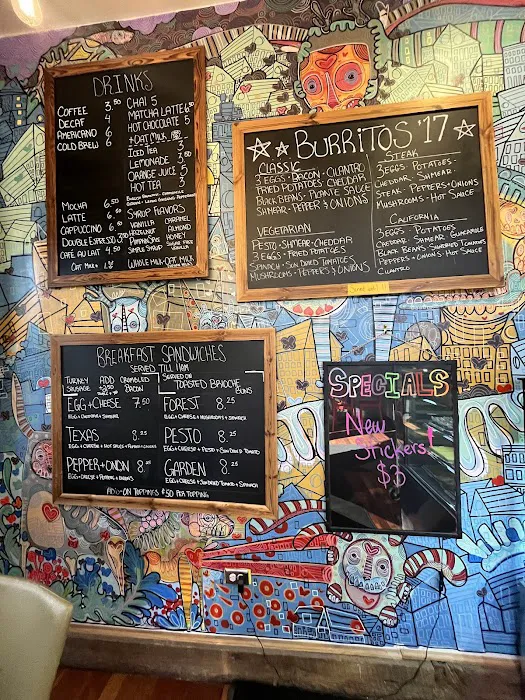 DRINKS
COFFEE 3.50
DECAF 4
AMERICANO 4
COLD BREW 6
CHAI 5
MATCHA LATTE 6.50
HOT CHOCOLATE 5
+OAT MILK
ICED TEA 3
LEMONADE 3.50
ORANGE JUICE 5
HOT TEA 3
MOCHA 6.50
LATTE 6
CAPPUCCINO 6
DOUBLE ESPRESSO 3.50
CAFE AU LAIT 4.50
OAT MILK +
SYRUP FLAVORS
VANILLA CARAMEL
HAZELNUT ALMOND
PUMPKIN SPICE HONEY
SIMPLE SYRUP SUGAR FREE VANILLA
WHOLE MILK - OAT MILK
BURRITOS $17
CLASSIC
3 EGGS - BACON - CILANTRO
FRIED POTATOES CHEDDAR
BLACK BEANS - PIQUANT SAUCE
SHMEAR - PEPPER & ONIONS
VEGETARIAN
PESTO - SHMEAR - CHEDDAR
3 EGGS - FRIED POTATOES
SPINACH - SUN DRIED TOMATOES
MUSHROOMS - PEPPERS & ONIONS
STEAK
3 EGGS POTATOES -
CHEDDAR - SHMEAR -
STEAK - PEPPERS + ONIONS
MUSHROOMS - HOT SAUCE
CALIFORNIA
3 EGGS - POTATOES
CHEDDAR - SHMEAR GUACAMOLE
BLACK BEANS SUNDRIED TOMATOES
PEPPERS + ONIONS - HOT SAUCE
CILANTRO
BREAKFAST SANDWICHES
SERVED TILL 11AM
TURKEY SAUSAGE
ADD +2.50
CRUMBLED BACON
SERVED ON
TOASTED BRIOCHE
BUNS
EGG + CHEESE 7.50
EGG + CHEDDAR + SHMEAR
TEXAS 8.25
EGG + CHEDDAR + HOT SAUCE + PEPPERS + ONIONS
PEPPER + ONION 8.25
EGG + CHEESE + PEPPERS + ONIONS
FOREST 8.25
EGG + CHEESE + MUSHROOMS + SPINACH
PESTO 8.25
EGG + CHEESE + PESTO + SUN DRIED TOMATO
GARDEN 8.25
EGG + CHEESE + SUNDRIED TOMATO + SPINACH
ADD-ON TOPPINGS $.50 PER TOPPING
SPECIALS
New
Stickers!
$3